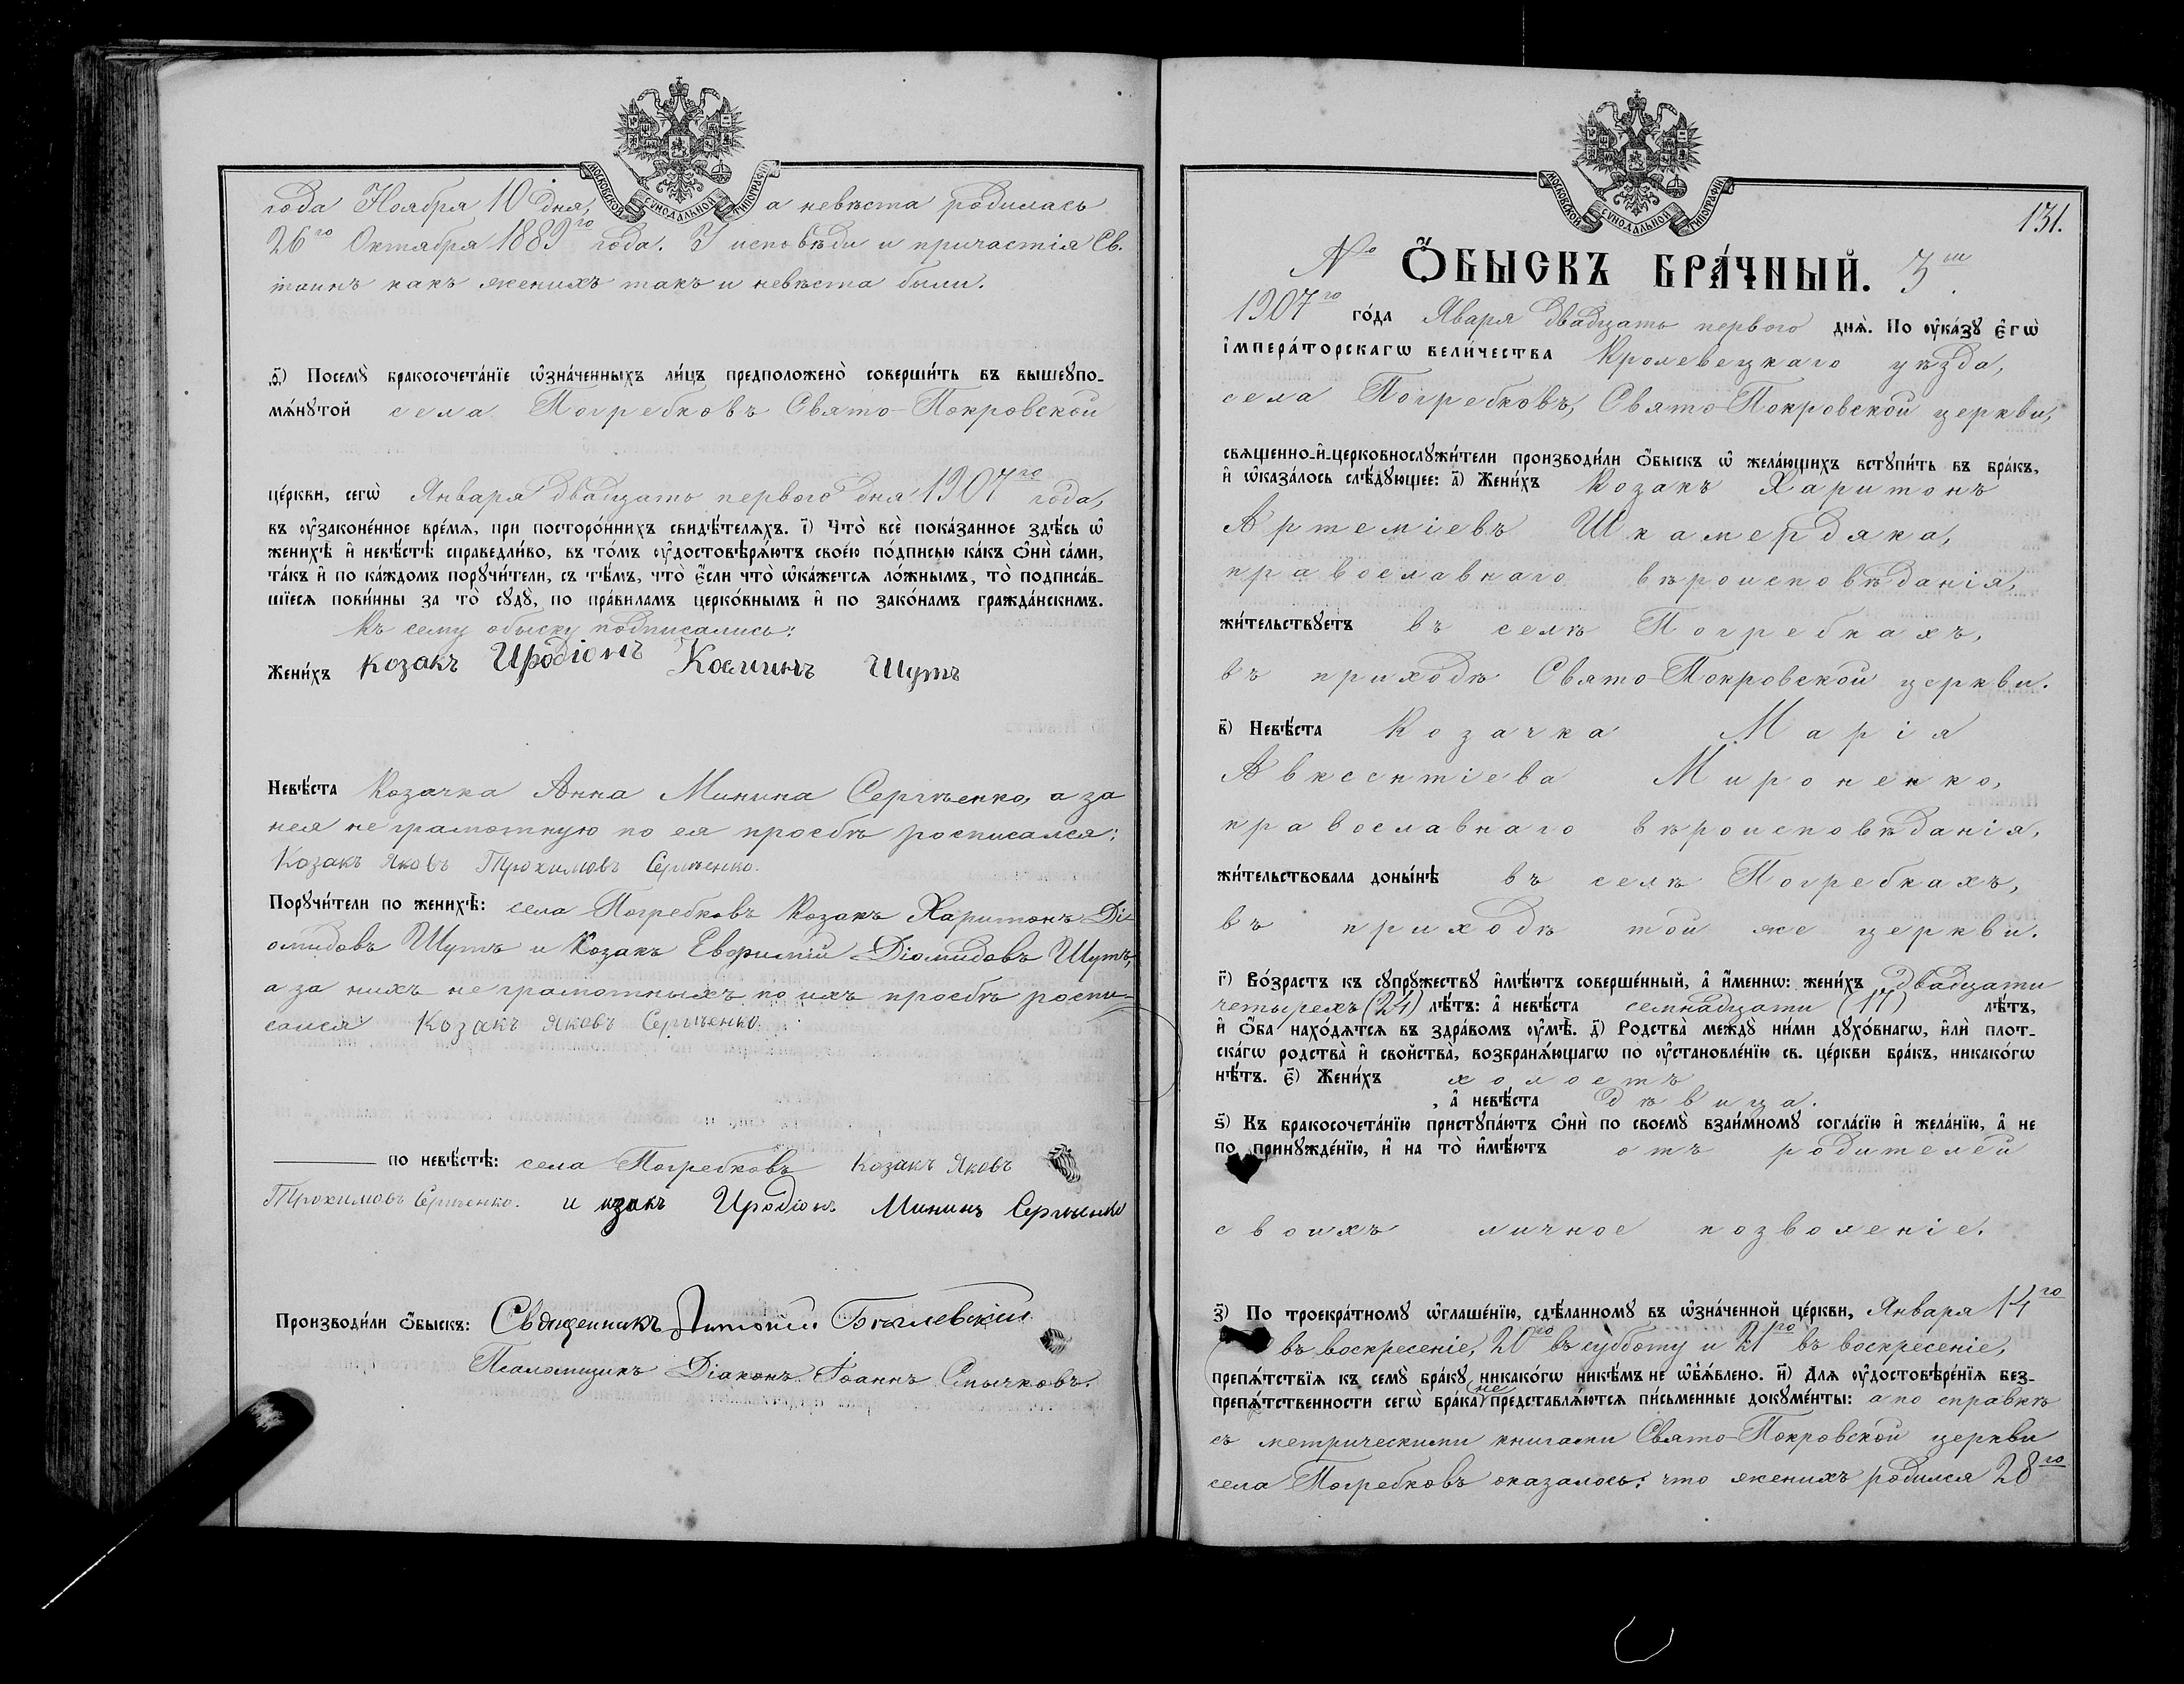 МОСКОВСКОЙ СѴНОДАЛЬНОЙ ТИПОГРАФІИ
года Ноября 10 дня, а невѣста родилась
26го Октября 1889го года. У исповѣди и причастія Св.
таинъ какъ женихъ такъ и невѣста были.
ѳ҃) Посемꙋ̀ бракосочета́нїе ѡ҆зна́ченныхъ ли́цъ предположено̀ соверши́ть въ вышеꙋпо-
мѧ́нꙋтой села Погребковъ Свято-Покровской
це́ркви, сегѡ̀ Января двадцать первого дня 1907го года,
въ ᲂу҆законе́нное вре́мѧ, при посторо́ннихъ свидѣ́телѧхъ. і҃) Что̀ всѐ пока́занное здѣ́сь ѡ҆
женихѣ̀ и҆ невѣ́стѣ справедли́во, въ то́мъ ᲂу҆достовѣрѧ́ютъ свое́ю по́дписью ка́къ ѻ҆нѝ са́ми,
та́къ и҆ по ка́ждомъ порꙋчи́тели, съ тѣ́мъ, что̀ є҆́сли что̀ ѡ҆ка́жетсѧ ло́жнымъ, то̀ подписа́в-
шїесѧ пови́нны за то̀ сꙋдꙋ̀, по пра́виламъ церко́внымъ и҆ по зако́намъ гражда́нскимъ.
Къ сему обыску подписались:
Жени́хъ Козакъ Иродіонъ Косминъ Шутъ
Невѣ́ста Козачка Анна Минина Сергѣенко, а за
нея не грамотную по ея просбѣ росписался:
Козакъ Яковъ Трохимовъ Сергѣенко.
Порꙋчи́тели по женихѣ̀: села Погребковъ Козакъ Харитонъ Ді-
омидовъ Шутъ и Козакъ Евфимій Діомидовъ Шутъ,
а за нихъ не грамотныхъ по ихъ просбѣ роспи-
сался Козакъ Яковъ Сергѣенко.
по невѣ́стѣ: села Погребковъ Козакъ Яковъ
Трохимовъ Сергѣенко. и козакъ Иродіонъ Мининъ Сергѣенко
Производи́ли ѻ҆́быскъ: Священникъ
Псаломщикъ Діаконъ Іоаннъ
МОСКОВСКОЙ СѴНОДАЛЬНОЙ ТИПОГРАФІИ
131.
№ Ѻ҆́БЫСКЪ БРА́ЧНЫЙ. 3й
1907го го́да Января двадцать первого днѧ̀. По ᲂу҆ка́зꙋ є҆гѡ̀
і҆мпера́торскагѡ вели́чества Кролевецкаго уѣзда,
села Погребковъ, Свято-Покровской церкви,
свѧщенно-и҆-церковнослꙋжи́тели производи́ли ѻ҆́быскъ ѡ҆ жела́ющихъ встꙋпи́ть въ бра́къ,
и҆ ѡ҆каза́лось слѣ́дꙋющее: а҃) Жени́хъ Козакъ Харитонъ
Артеміевъ Шкамердяка,
православнаго вѣроисповѣданія,
жи́тельствꙋетъ въ селѣ Погребкахъ,
въ приходѣ Свято-Покровской церкви.
в҃) Невѣ́ста Козачка Марія
Авксентіева Мироненко,
православнаго вѣроисповѣданія,
жи́тельствовала доны́нѣ въ селѣ Погребкахъ,
въ приходѣ той же церкви.
г҃) Во́зрастъ къ сꙋпрꙋ́жествꙋ и҆мѣ́ютъ соверше́нный, а҆ и҆́меннѡ: жени́хъ двадцати
четырехъ (24) лѣ́тъ: а҆ невѣ́ста семнадцати (17) лѣ́тъ,
и҆ ѻ҆́ба нахо́дѧтсѧ въ здра́вомъ ᲂу҆мѣ̀. д҃) Родства̀ междꙋ̀ ни́ми дꙋхо́внагѡ, и҆лѝ плот-
ска́гѡ родства̀ и҆ сво́йства, возбранѧ́ющагѡ по ᲂу҆становле́нїю св. це́ркви бра́къ, никако́гѡ
нѣ́тъ. є҃) Жени́хъ холостъ
, а҆ невѣ́ста дѣвица.
ѕ҃) Къ бракосочета́нїю пристꙋпа́ютъ ѻ҆нѝ по своемꙋ̀ взаи́мномꙋ согла́сїю и҆ жела́нїю, а҆ не
по принꙋжде́нїю, и҆ на то̀ и҆мѣ́ютъ отъ родителей
своихъ личное позволеніе.
з҃) По троекра́тномꙋ ѡ҆глаше́нїю, сдѣ́ланномꙋ въ ѡ҆зна́ченной це́ркви, Января 14го
въ воскресеніе, 20го въ субботу и 21го въ воскресеніе,
препѧ́тствїѧ къ семꙋ̀ бра́кꙋ никако́гѡ никѣ́мъ не ѡ҆б̾ѧ́влено. и҃) Для ᲂу҆достовѣре́нїѧ без-
препѧ́тственности сегѡ̀ бра́ка не представлѧ́ютсѧ пи́сьменные докꙋме́нты: а по справкѣ
съ метрическими книгами Свято-Покровской церкви
села Погребковъ оказалось: что женихъ родился 28го